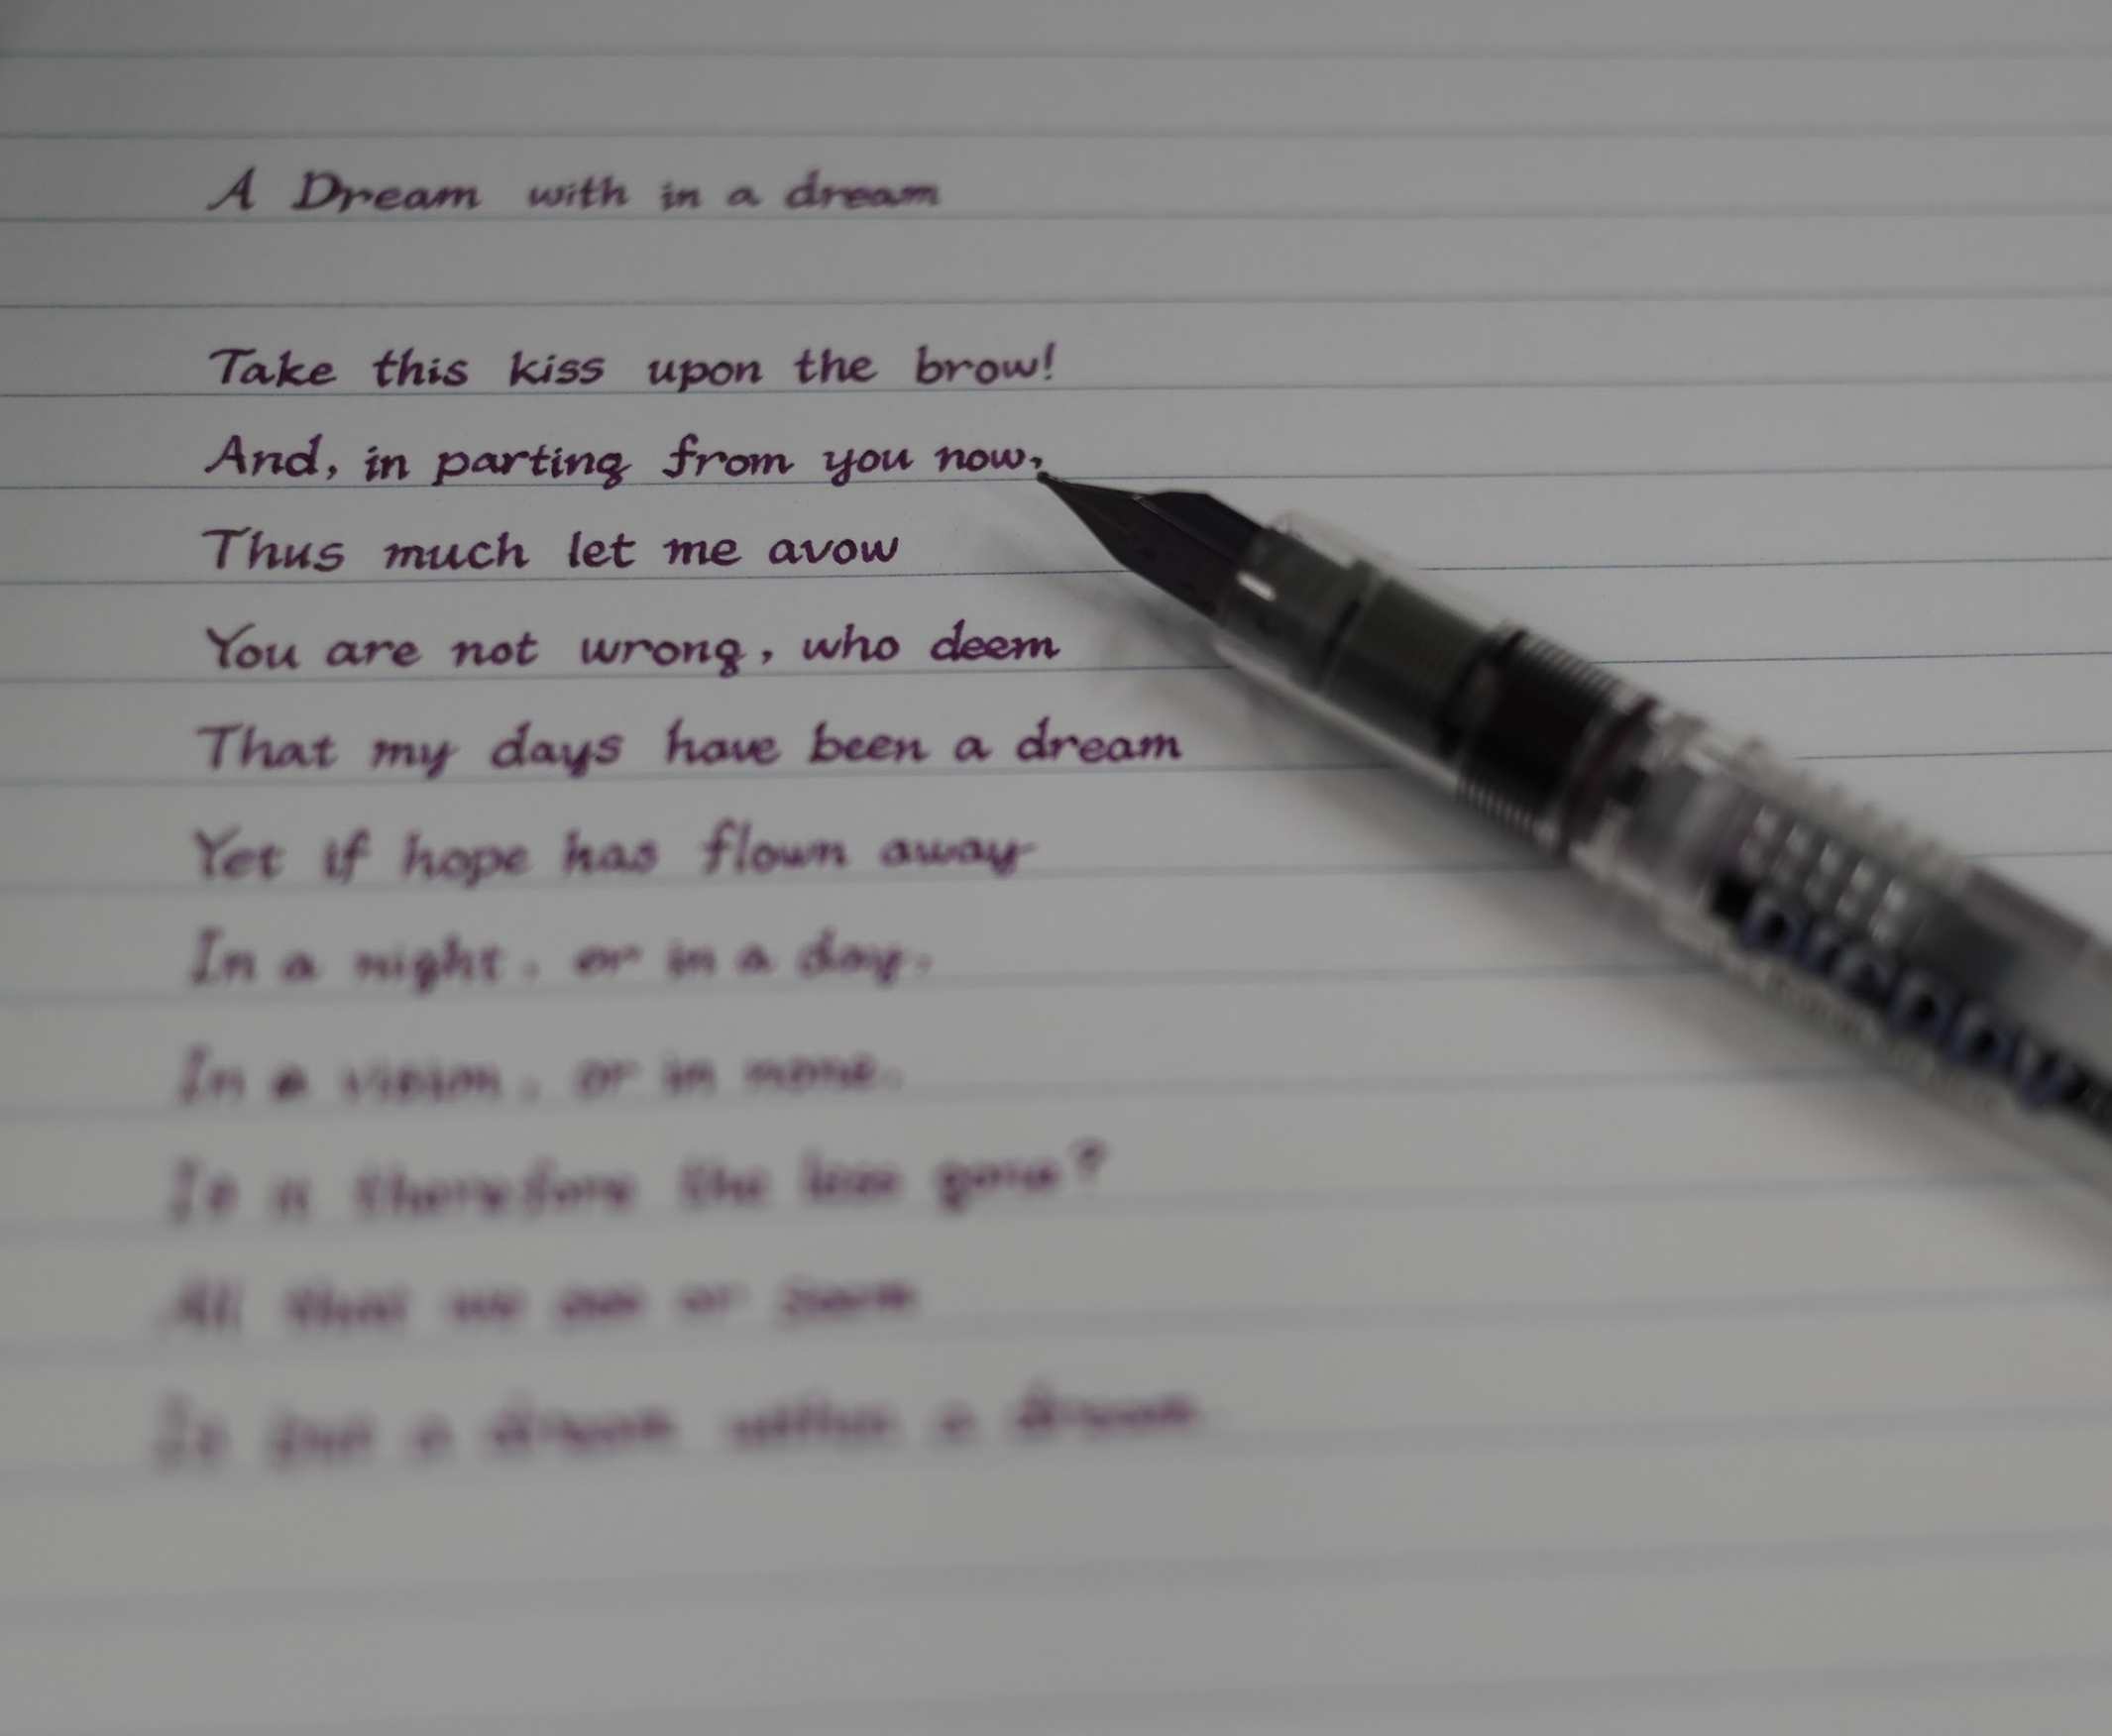 A Dream with in a dream
Take this kiss upon the brow!
And, in parting from you now,
Thus much let me avow
You are not wrong, who deem
That my days have been a dream
Yet if hope has flown away
In a night, or in a day,
In a vision, or in none,
Is it therefore the less gone?
All that we see or seem
Is but a dream within a dream
preppy